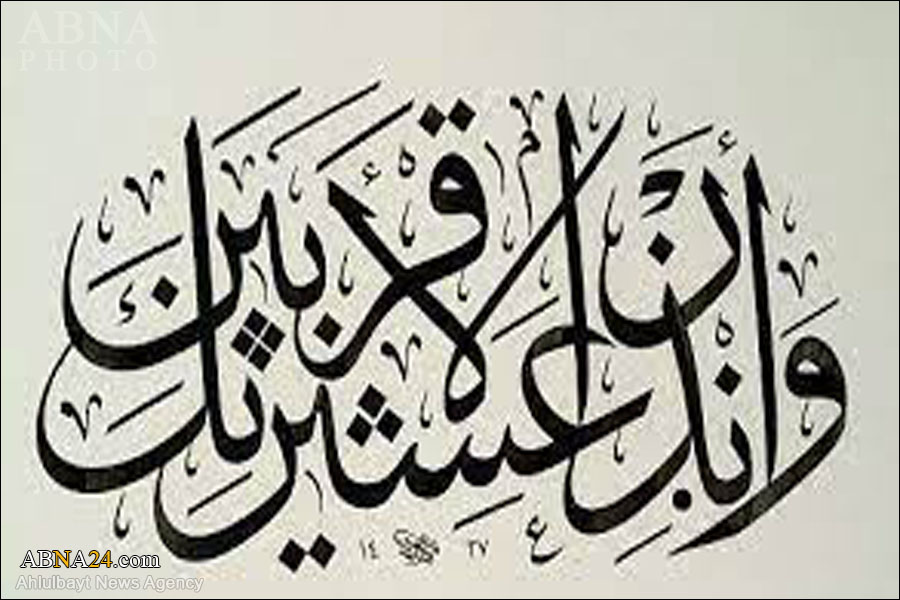 ABNA
PHOTO
وَأَنذِرْ عَشِيرَتَكَ الْأَقْرَبِينَ
١٤ ٢٧
ABNA24.com
Ahlulbayt News Agency